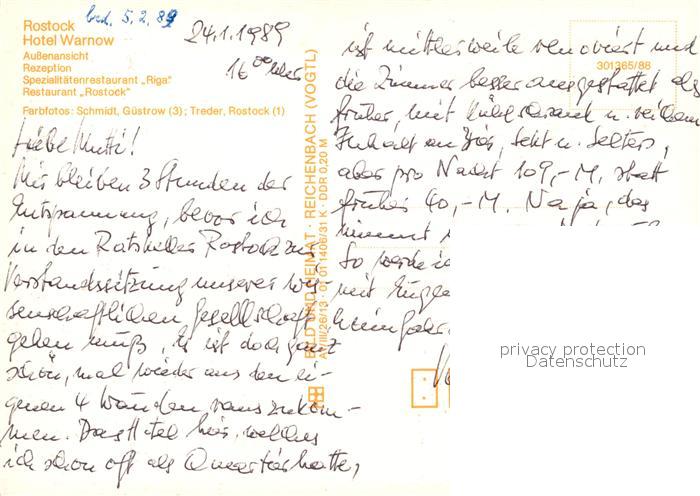 Rostock
Hotel Warnow
Außenansicht
Rezeption
Spezialitätenrestaurant „Riga"
Restaurant „Rostock"
Farbfotos: Schmidt, Güstrow (3); Treder, Rostock (1)
5.2.89
24.1.1989
16⁰⁰ Uhr
Liebe Mutti!
Mir bleiben 3 Stunden der
Entspannung, bevor ich
in den Ratskeller Rostock zur
Vorstandssitzung unserer wis-
senschaftlichen Gesellschaft
gehen muß. Es ist doch ganz
schön, mal wieder aus den ei-
genen 4 Wänden rauszukom-
men. Das Hotel hier, welches
ich schon oft als Quartier hatte,
BILD UND HEIMAT · REICHENBACH (VOGTL)
A1/III/26/13 · 01 01 1406/31 K · DDR 0,20 M
301365/88
ist mittlerweile renoviert und
die Zimmer besser ausgestattet als
früher, mit Kühlschrank u. reichem
Inhalt an Bier, Sekt u. Selters,
aber pro Nacht 109,-M. statt
früher 40,-M. Na ja, das
nimmt
So werde ic
mit
heimfahr
privacy protection
Datenschutz